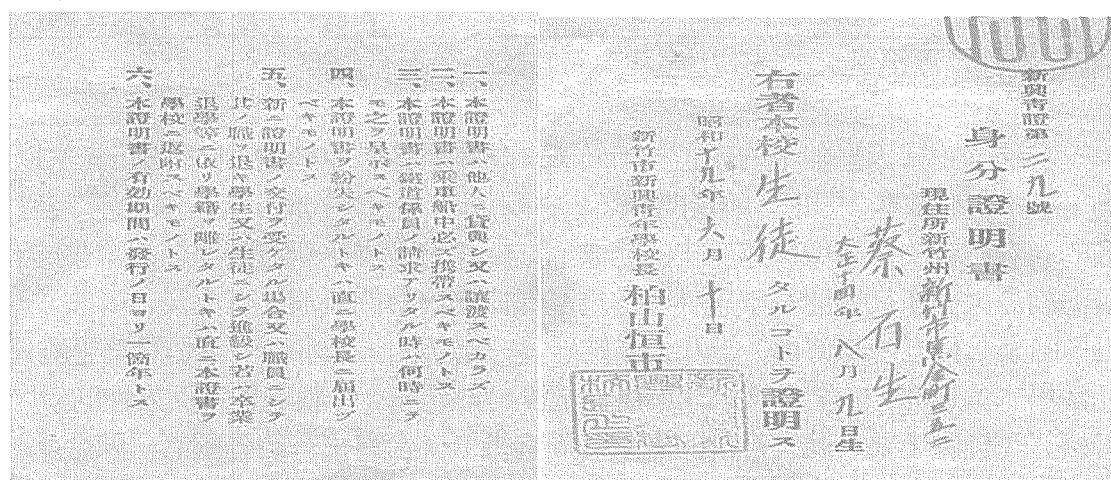 新興青證第二九號
身分證明書
現住所新竹州新竹市黑金町三五二
蔡石生
大正十四年八月九日生
右者本校生徒タルコトヲ證明ス
昭和十九年六月十日
新竹市新興青年學校長 柏山恒市
一、本證明書ハ他人ニ貸與シ又ハ讓渡スベカラズ
二、本證明書ハ乘車船中必ズ携帶スベキモノトス
三、本證明書ハ鐵道係員ノ請求アリタル時ハ何時ニテ
モ之ヲ呈示スベキモノトス
四、本證明書ヲ紛失シタルトキハ直ニ學校長ニ屆出ヅ
ベキモノトス
五、新ニ證明書ノ交付ヲ受ケタル場合又ハ職員ニシテ
其ノ職ヲ退キ學生又ハ生徒ニシテ進級シ若ハ卒業
退學等ニ依リ學籍ヲ離レタルトキハ直ニ本證書ヲ
學校ニ返附スベキモノトス
六、本證明書ノ有効期間ハ發行ノ日ヨリ一箇年トス